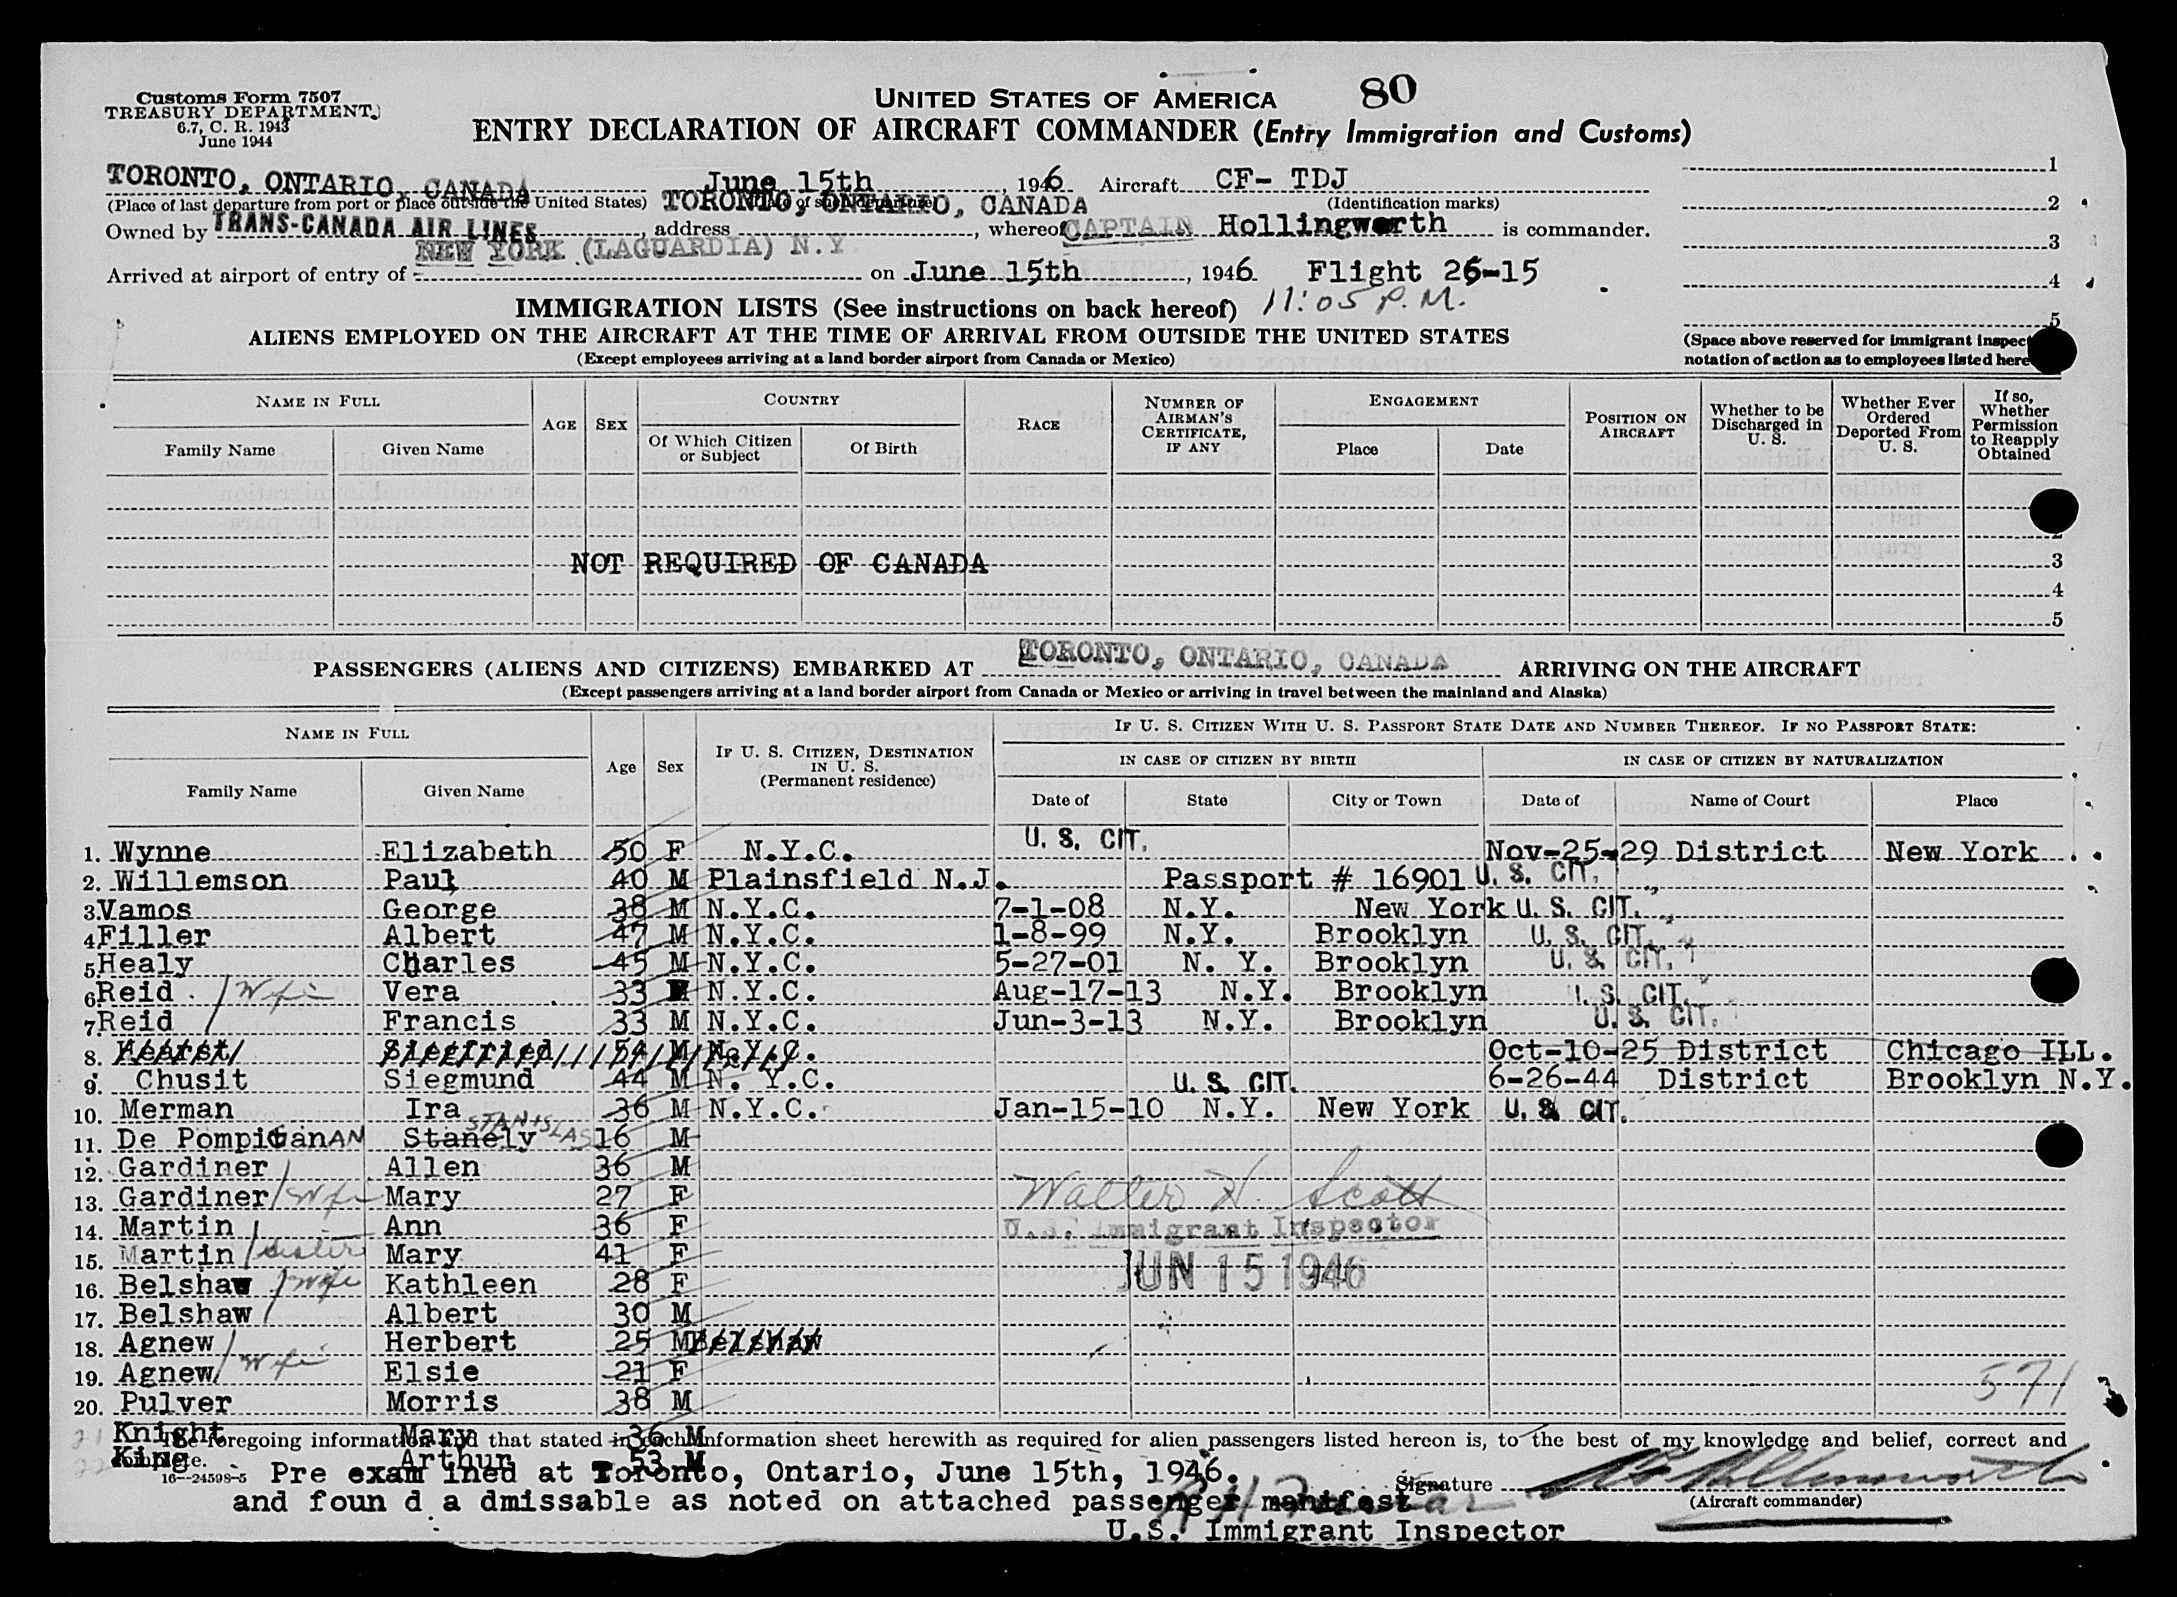 80
Customs Form 7507
TREASURY DEPARTMENT
6.7, C. R. 1943
June 1944
UNITED STATES OF AMERICA
ENTRY DECLARATION OF AIRCRAFT COMMANDER (Entry Immigration and Customs)
TORONTO, ONTARIO, CANADA June 15th, 1946 Aircraft CF- TDJ 1
(Place of last departure from port or place outside the United States) TORONTO, ONTARIO, CANADA (Identification marks) 2
Owned by TRANS-CANADA AIR LINES, address, whereof CAPTAIN Hollingworth is commander.
3
NEW YORK (LAGUARDIA) N.Y
Arrived at airport of entry of on June 15th, 1946 Flight 26-15 4
IMMIGRATION LISTS (See instructions on back hereof) 11:05 P.M. 5
ALIENS EMPLOYED ON THE AIRCRAFT AT THE TIME OF ARRIVAL FROM OUTSIDE THE UNITED STATES
(Space above reserved for immigrant inspec
(Except employees arriving at a land border airport from Canada or Mexico)
notation of action as to employees listed here
NAME IN FULL AGE SEX COUNTRY RACE NUMBER OF AIRMAN'S CERTIFICATE, IF ANY ENGAGEMENT POSITION ON AIRCRAFT Whether to be Discharged in U. S. Whether Ever Ordered Deported From U. S. If so, Whether Permission to Reapply Obtained
Family Name Given Name Of Which Citizen or Subject Of Birth Place Date
2
NOT REQUIRED OF CANADA 3
4
5
PASSENGERS (ALIENS AND CITIZENS) EMBARKED AT TORONTO, ONTARIO, CANADA ARRIVING ON THE AIRCRAFT
(Except passengers arriving at a land border airport from Canada or Mexico or arriving in travel between the mainland and Alaska)
NAME IN FULL Age Sex IF U. S. CITIZEN, DESTINATION IN U. S. (Permanent residence) IF U. S. CITIZEN WITH U. S. PASSPORT STATE DATE AND NUMBER THEREOF. IF NO PASSPORT STATE:
IN CASE OF CITIZEN BY BIRTH IN CASE OF CITIZEN BY NATURALIZATION
Family Name Given Name Date of State City or Town Date of Name of Court Place
1. Wynne Elizabeth 50 F N.Y.C. U. S. CIT. Nov-25-29 District New York
2. Willemson Paul 40 M Plainsfield N.J. Passport # 16901 U. S. CIT.
3. Vamos George 38 M N.Y.C. 7-1-08 N.Y. New York U. S. CIT.
4. Filler Albert 47 M N.Y.C. 1-8-99 N.Y. Brooklyn U. S. CIT.
5. Healy Charles 45 M N.Y.C. 5-27-01 N. Y. Brooklyn U. S. CIT.
6. Reid Wife Vera 33 F N.Y.C. Aug-17-13 N.Y. Brooklyn U. S. CIT.
7. Reid Francis 33 M N.Y.C. Jun-3-13 N.Y. Brooklyn U. S. CIT.
8. Hearst Siegfried 54 M N.Y.C. Oct-10-25 District Chicago ILL.
9. Chusit Siegmund 44 M N. Y.C. U. S. CIT. 6-26-44 District Brooklyn N.Y.
10. Merman Ira 36 M N.Y.C. Jan-15-10 N.Y. New York U. S. CIT.
11. De Pompignan AN Stanely STANISLAS 16 M
12. Gardiner Allen 36 M
13. Gardiner Wife Mary 27 F Walter H. Scott
14. Martin Ann 36 F U.S. Immigrant Inspector
15. Martin sister Mary 41 F JUN 15 1946
16. Belshaw wife Kathleen 28 F
17. Belshaw Albert 30 M
18. Agnew Herbert 25 M Belshaw
19. Agnew Wife Elsie 21 F 571
20. Pulver Morris 38 M
21 Knight Mary 36 M
22 King Arthur 53 M
The foregoing information and that stated in each information sheet herewith as required for alien passengers listed hereon is, to the best of my knowledge and belief, correct and complete.
16—24598-5 Pre exam ined at Toronto, Ontario, June 15th, 1946. Signature
(Aircraft commander)
and foun d a dmissable as noted on attached passenger manifest
U.S. Immigrant Inspector